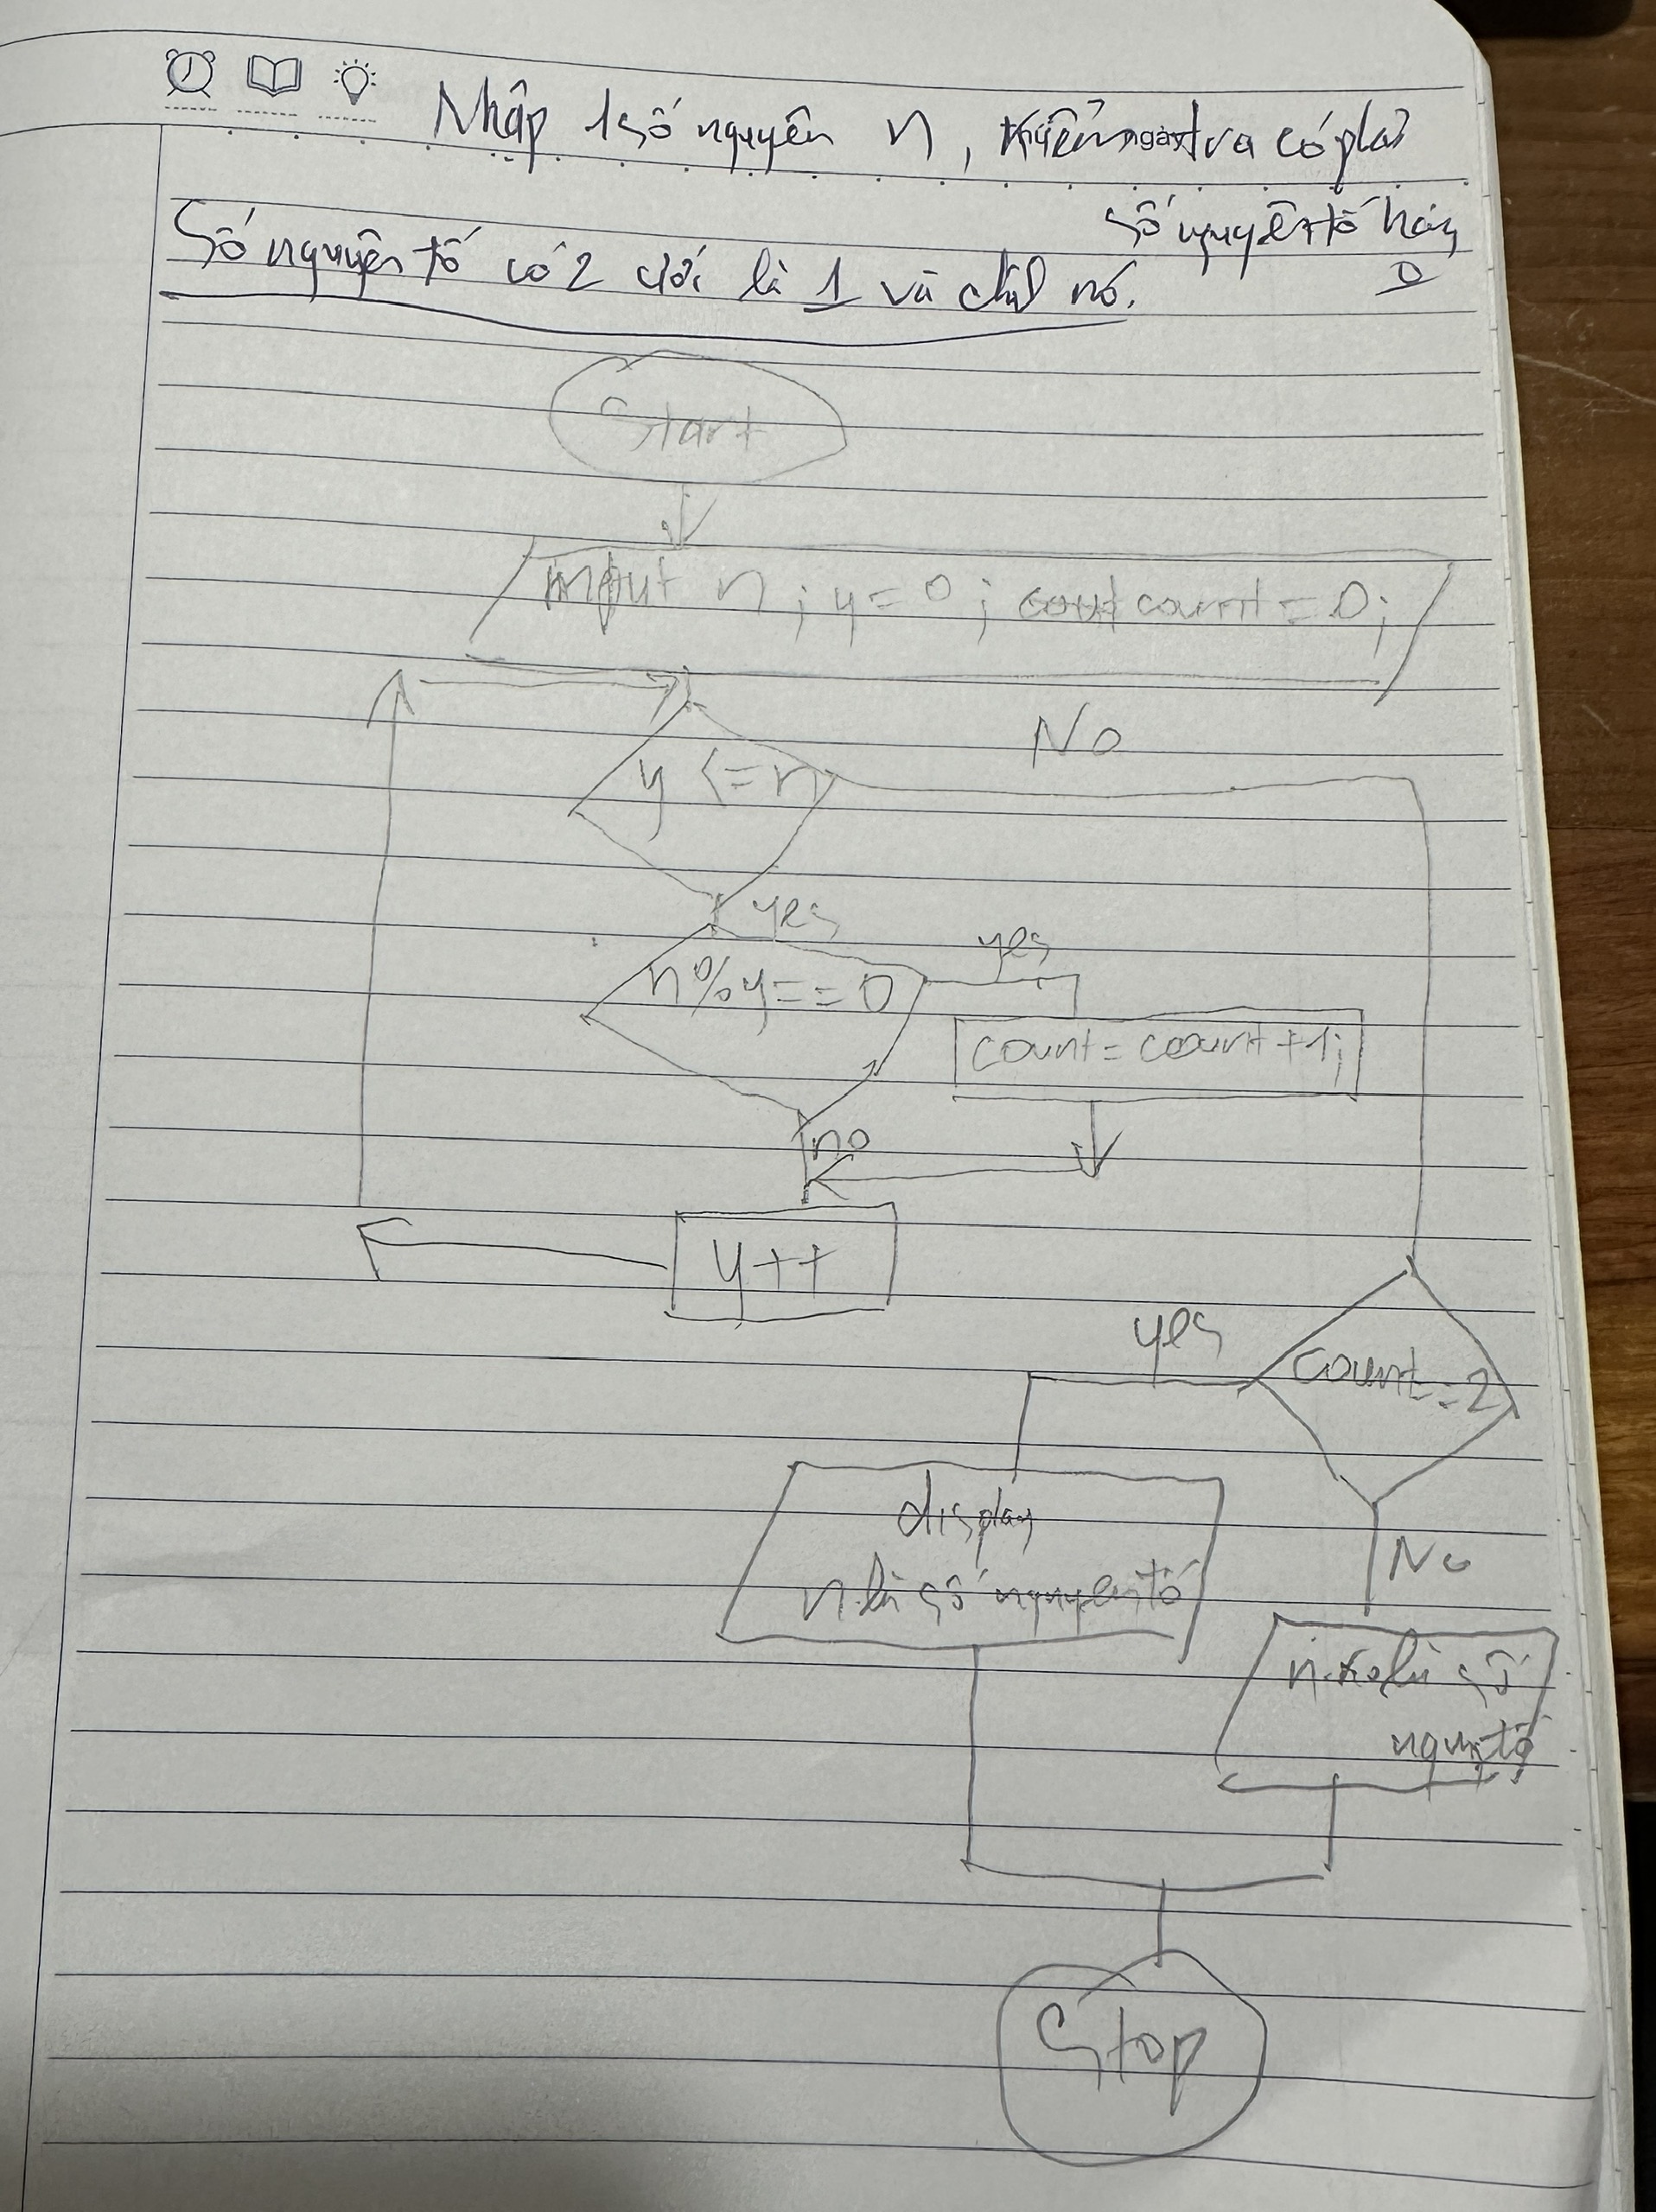 Nhập 1 số nguyên n, Kiểm tra có phải
số nguyên tố hay
0
Số nguyên tố có 2 ước là 1 và chính nó.
Start
input n; y=0; cout count=0;
No
y <=n
yes
yes
n%y==0
count=count+1;
no
y++
yes
count=2
display
n là số nguyên tố
No
n ko là số
nguyên tố
Stop